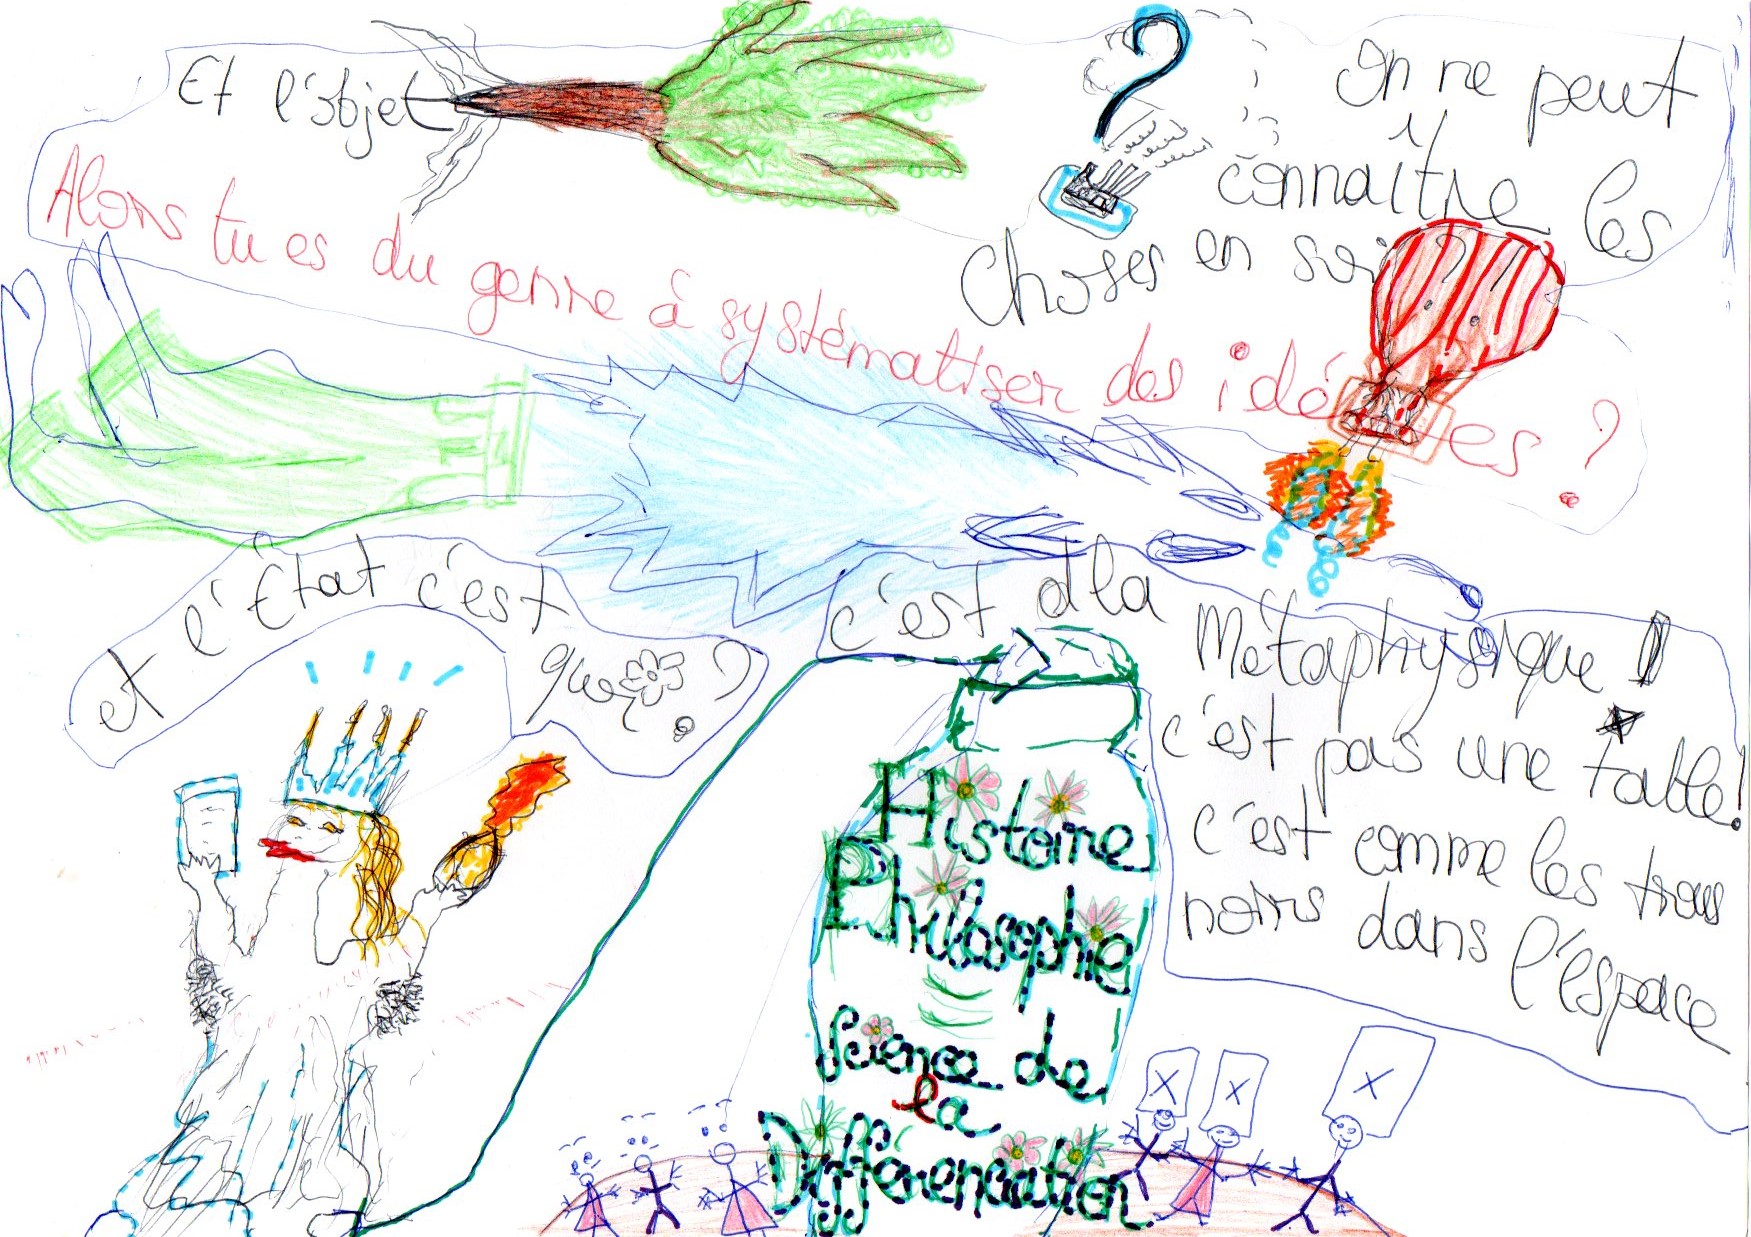 Et l'objet
On ne peut
connaître les
choses en soi ?
Alors tu es du genre à systématiser des idées ?
et l'État c'est
que ?
c'est d la
Métaphysique !
c'est pas une table !
c'est comme les trous
noirs dans l'espace
Histoire
Philosophie
Science de
la
Différenciation
X X X